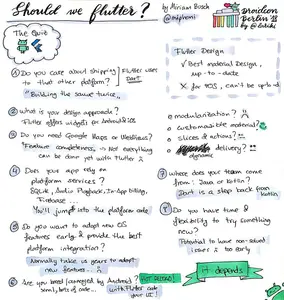 Should we flutter?
by Miriam Busch
@mirphoni
Droidcon
Berlin '18
by @lutiki
The Quiz
① Do you care about shipping
to that other platform?
"Building the same twice"
Flutter uses
Dart
② What is your design approach?
Flutter offers widgets for Android & iOS
③ Do you need Google Maps or WebViews?
"Feature completeness → Not everything
can be done yet with Flutter
④ Does your app rely on
platform services?
SQLite, Audio Playback, In-App billing,
Firebase ...
You'll jump into the platform code
⑤ Do you want to adopt new OS
features early & provide the best
platform integration?
Normally take us years to adopt
new features...
⑥ Are you bored (annoyed) by Android?
lots of code...
HOT RELOAD!
with Flutter code
your UI!
Flutter Design
✓ Best material design,
up-to-date
X for iOS, can't be up-to-d
modularization?
customisable material?
slices & actions?
delivery?
dynamic
⑦ Where does your team come
from: Java or Kotlin?
Dart is a step back from
Kotlin
⑧ Do you have time &
flexibility to try something
new?
Potential to have
issues is too early
it depends